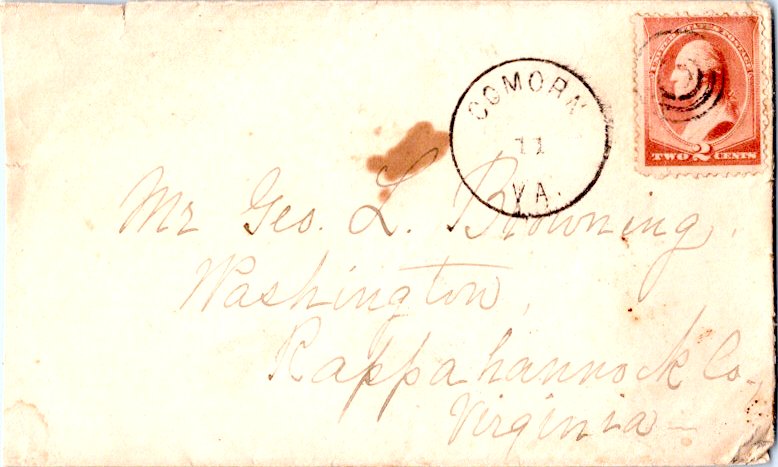 COMORN
11
VA.
TWO 2 CENTS
Mr Geo. L. Browning,
Washington,
Rappahannock Co.,
Virginia —